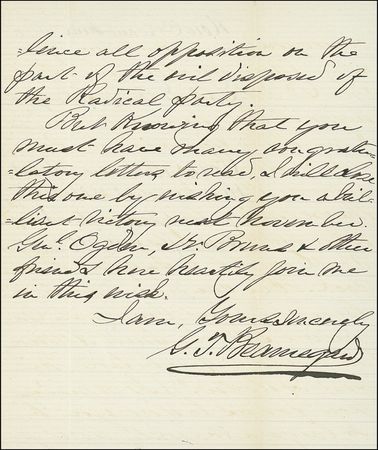 -lence all opposition on the
part of the evil disposed of
the Radical party.
But knowing that you
must have many congratu-
-latory letters to read, I will close
this one by wishing you a bril-
-liant victory next November.
Genl. Ogden, Dr. Bruns & other
friends here heartily join me
in this wish.
I am, Yours sincerely
G. T. Beauregard